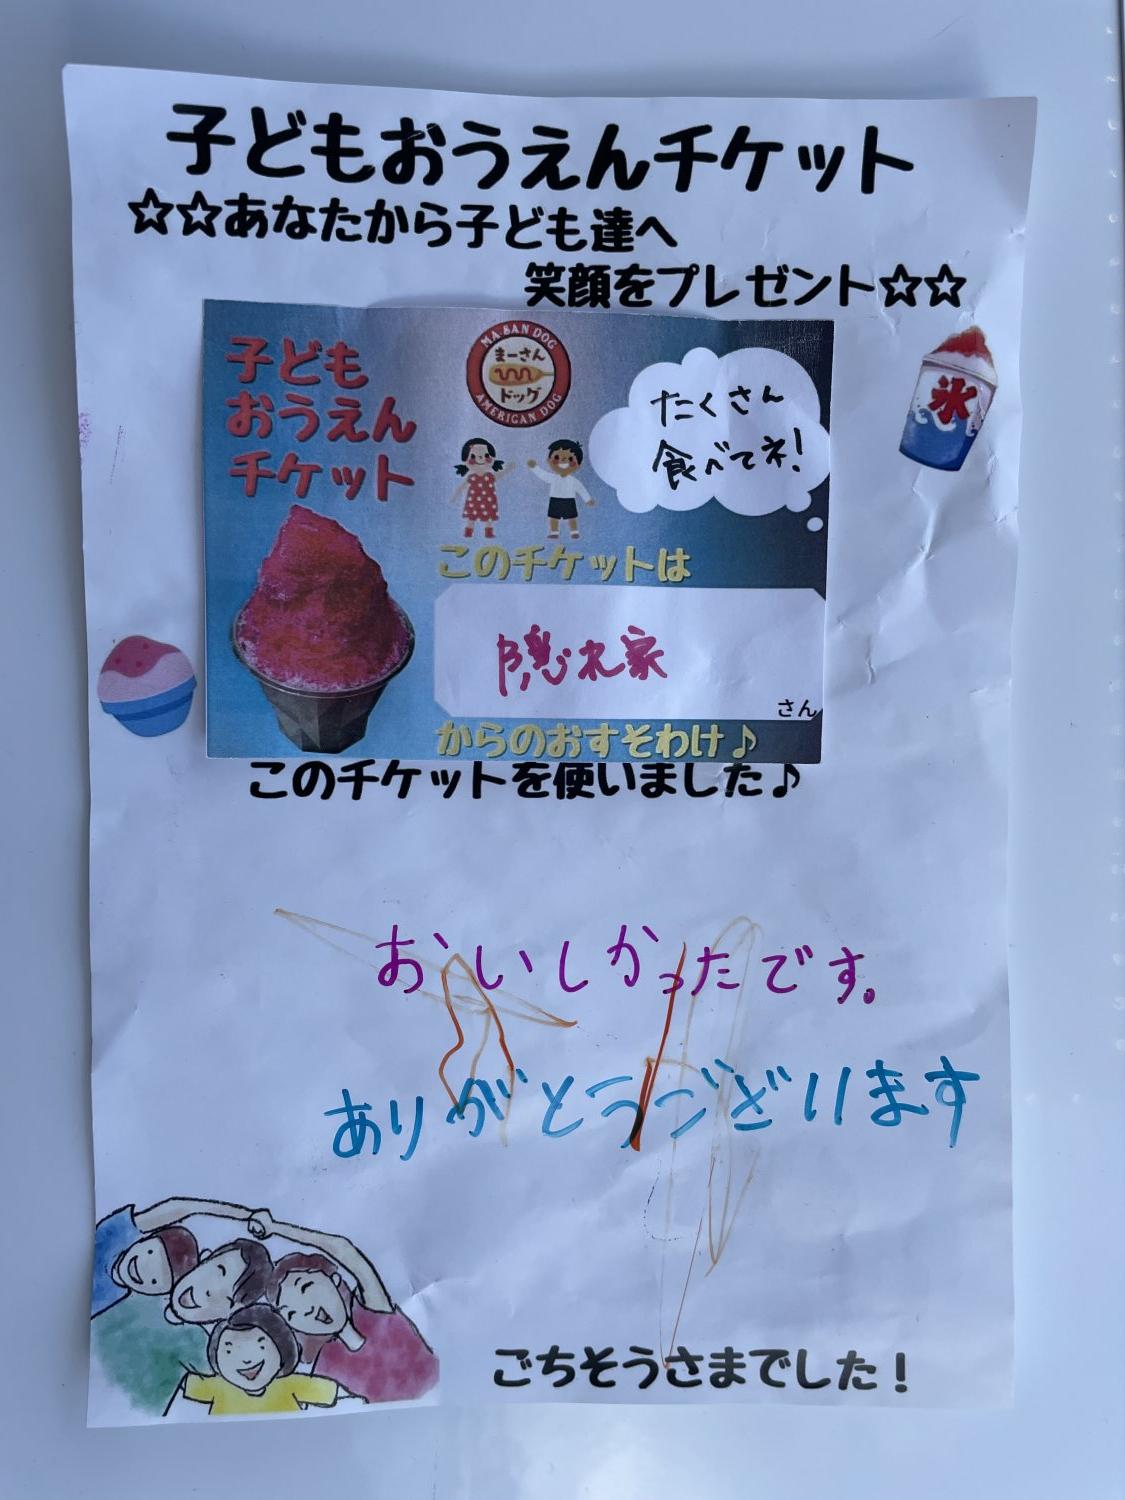 子どもおうえんチケット
☆☆あなたから子ども達へ
笑顔をプレゼント☆☆
氷
子ども
おうえん
チケット
MA SAN DOG
まーさん
ドッグ
AMERICAN DOG
たくさん
食べてネ!
このチケットは
隠れ家
さん
からのおすそわけ♪
このチケットを使いました♪
おいしかったです。
ありがとうございます
ごちそうさまでした!